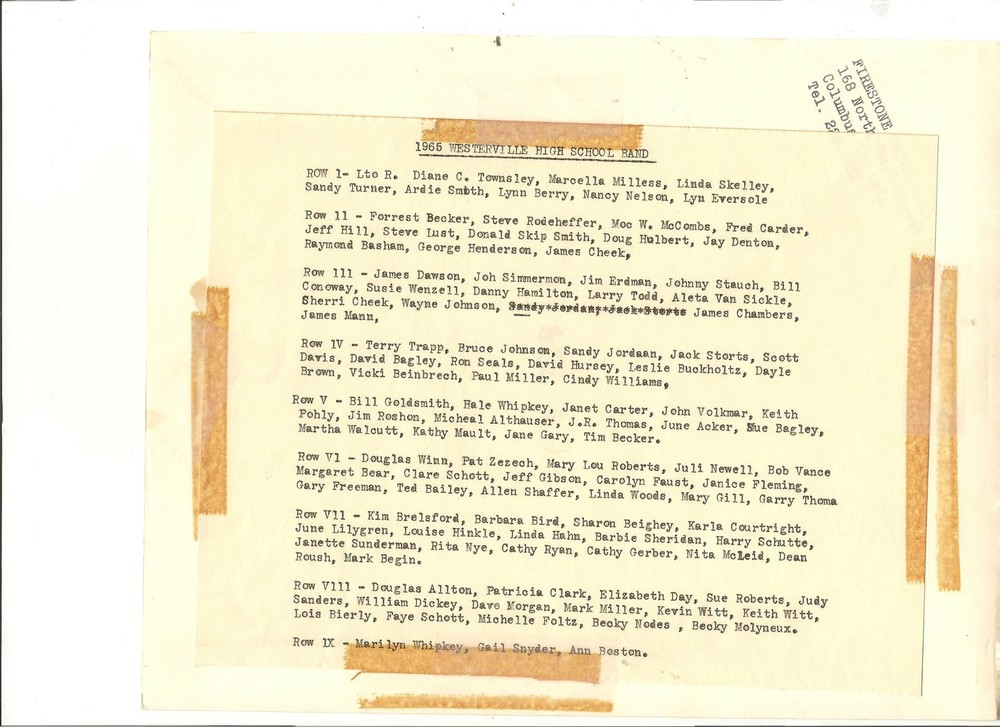 FIRESTONE
168 North
Columbus
Tel. 2
1965 WESTERVILLE HIGH SCHOOL BAND
ROW 1- Lto R. Diane C. Townsley, Marcella Milless, Linda Skelley,
Sandy Turner, Ardie Smith, Lynn Berry, Nancy Nelson, Lyn Eversole
Row 11 - Forrest Becker, Steve Rodeheffer, Moc W. McCombs, Fred Carder,
Jeff Hill, Steve Lust, Donald Skip Smith, Doug Hulbert, Jay Denton,
Raymond Basham, George Henderson, James Cheek,
Row 111 - James Dawson, Joh Simmermon, Jim Erdman, Johnny Stauch, Bill
Conoway, Susie Wenzell, Danny Hamilton, Larry Todd, Aleta Van Sickle,
Sherri Cheek, Wayne Johnson, Sandy Jordan, Jack Storts James Chambers,
James Mann,
Row 1V - Terry Trapp, Bruce Johnson, Sandy Jordaan, Jack Storts, Scott
Davis, David Bagley, Ron Seals, David Hursey, Leslie Buckholtz, Dayle
Brown, Vicki Beinbrech, Paul Miller, Cindy Williams,
Row V - Bill Goldsmith, Hale Whipkey, Janet Carter, John Volkmar, Keith
Pohly, Jim Roshon, Micheal Althauser, J.R. Thomas, June Acker, Sue Bagley,
Martha Walcutt, Kathy Mault, Jane Gary, Tim Becker.
Row V1 - Douglas Winn, Pat Zezech, Mary Lou Roberts, Juli Newell, Bob Vance
Margaret Bear, Clare Schott, Jeff Gibson, Carolyn Faust, Janice Fleming,
Gary Freeman, Ted Bailey, Allen Shaffer, Linda Woods, Mary Gill, Garry Thoma
Row V11 - Kim Brelsford, Barbara Bird, Sharon Beighey, Karla Courtright,
June Lilygren, Louise Hinkle, Linda Hahn, Barbie Sheridan, Harry Schutte,
Janette Sunderman, Rita Nye, Cathy Ryan, Cathy Gerber, Nita McLeid, Dean
Roush, Mark Begin.
Row V111 - Douglas Allton, Patricia Clark, Elizabeth Day, Sue Roberts, Judy
Sanders, William Dickey, Dave Morgan, Mark Miller, Kevin Witt, Keith Witt,
Lois Bierly, Faye Schott, Michelle Foltz, Becky Nodes , Becky Molyneux.
Row 1X - Marilyn Whipkey, Gail Snyder, Ann Boston.